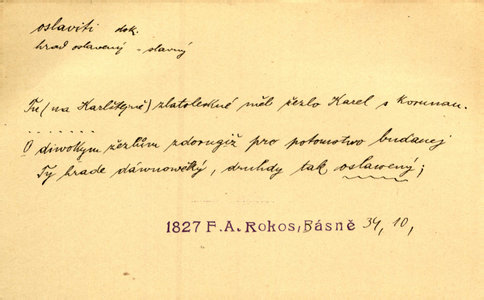 oslaviti dok.
hrad oslavený - slavný
Tu (na Karlštejně) zlatoleskné měl žezlo Karel s korunau.
. . . . . . .
O diwokým zdorugiž pro potomstwo budaucj
Ty hrade dáwnowěký, druhdy tak oslawený;
1827 F.A. Rokos, Básně 34, 10,